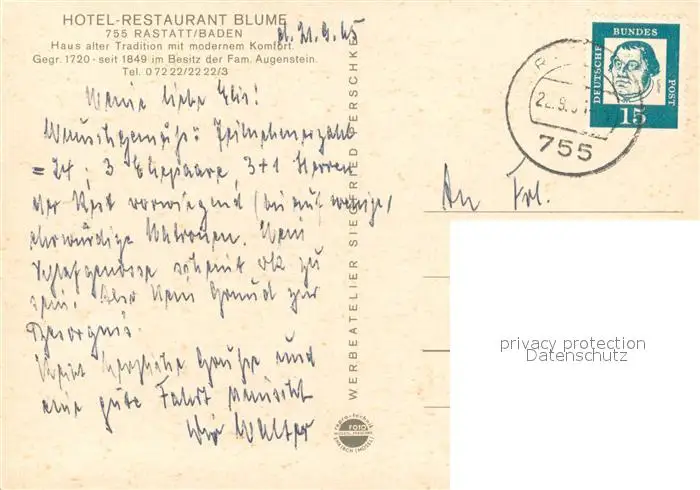 HOTEL-RESTAURANT BLUME
755 RASTATT/BADEN
Haus alter Tradition mit modernem Komfort.
Gegr. 1720 · seit 1849 im Besitz der Fam. Augenstein.
Tel. 07222/2222/3
d. 21.9.65
Meine liebe Elis!
Wunschgemäss: Teilnehmerzahl
= 24; 3 Ehepaare, 3+1 Herren
der Rest vorwiegend (bis auf wenige)
ehrwürdige Matronen. Mein
Schlafgenosse scheint ok zu
sein. Also kein Grund zur
Besorgnis.
herzliche Grüsse und
eine gute Fahrt wünscht
Dir Walter
WERBEATELIER SIEGFRIED PERSCHKE
FOTO
DEUTSCHE BUNDES POST
15
755
An Frl.
privacy protection
Datenschutz